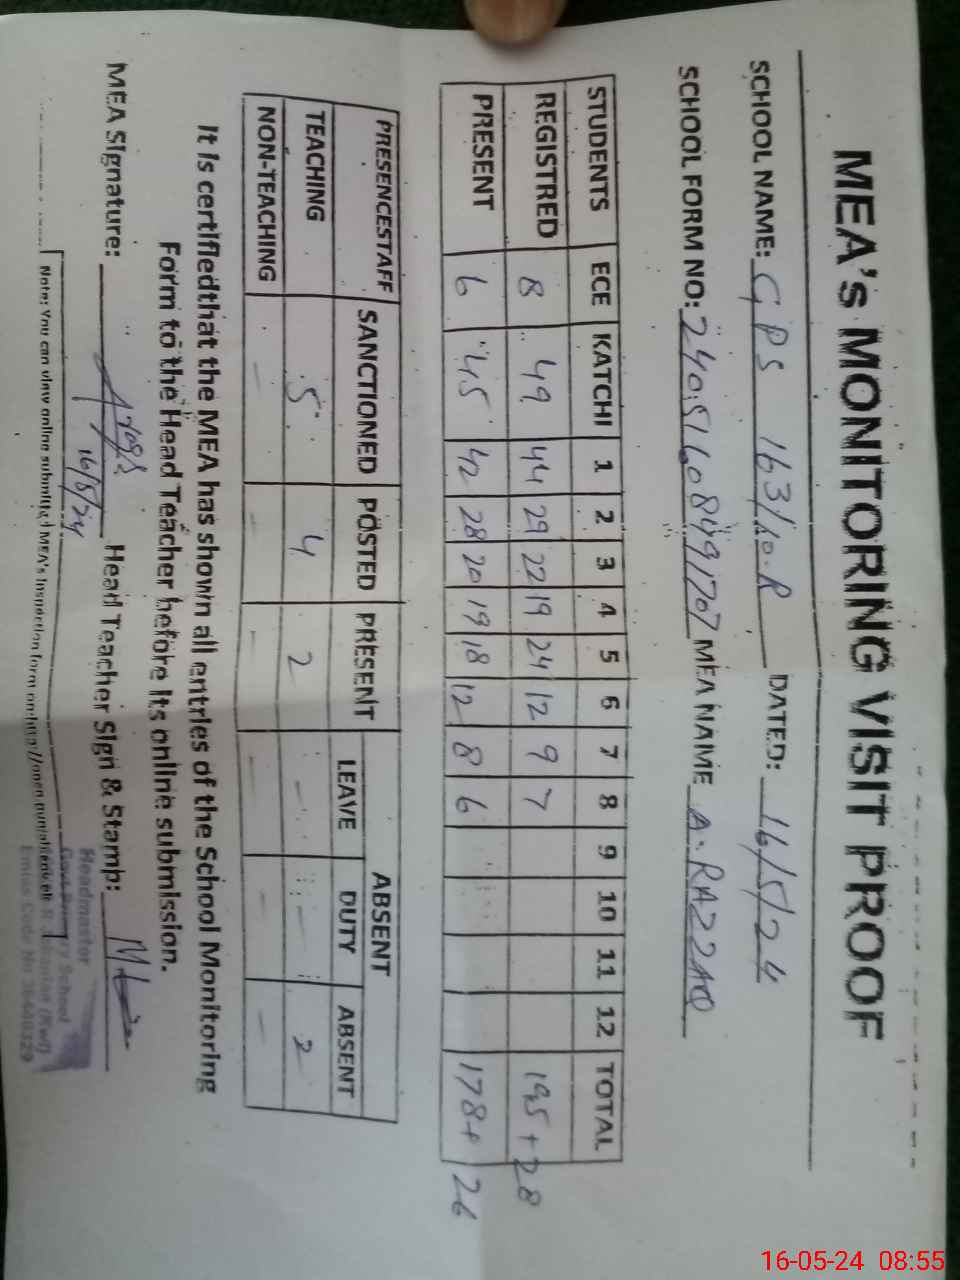 MEA's MONITORING VISIT PROOF
SCHOOL NAME: GPS 163/10.R DATED: 16/5/24
SCHOOL FORM NO: 240516084991707 MEA NAME A. RAZZAQ
STUDENTS ECE KATCHI 1 2 3 4 5 6 7 8 9 10 11 12 TOTAL
REGISTRED 8 49 44 29 22 19 24 12 9 7 195+28
PRESENT 6 45 42 28 20 19 18 12 8 6 178+26
PRESENCESTAFF SANCTIONED POSTED PRESENT ABSENT
LEAVE DUTY ABSENT
TEACHING 5 4 2 - - 2
NON-TEACHING - - - - - -
It is certifiedthat the MEA has shown all entries of the School Monitoring
Form to the Head Teacher before its online submission.
MEA Signature: Head Teacher Sign & Stamp:
16/5/24
Headmaster
Govt Primary School
Note: You can view online submitted MEA's Inspection form on:
Emiss Code No
16-05-24 08:55